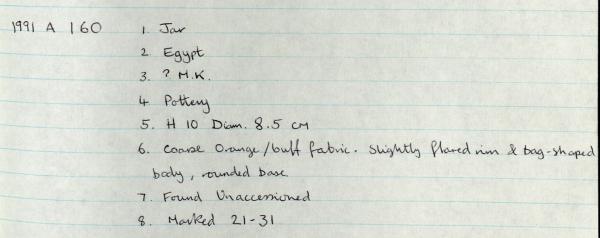 1991 A 160 1. Jar
2. Egypt
3. ? M.K.
4. Pottery
5. H 10 Diam. 8.5 cm
6. Coarse Orange/buff fabric. Slightly flared rim & bag-shaped
body, rounded base
7. Found Unaccessioned
8. Marked 21-31